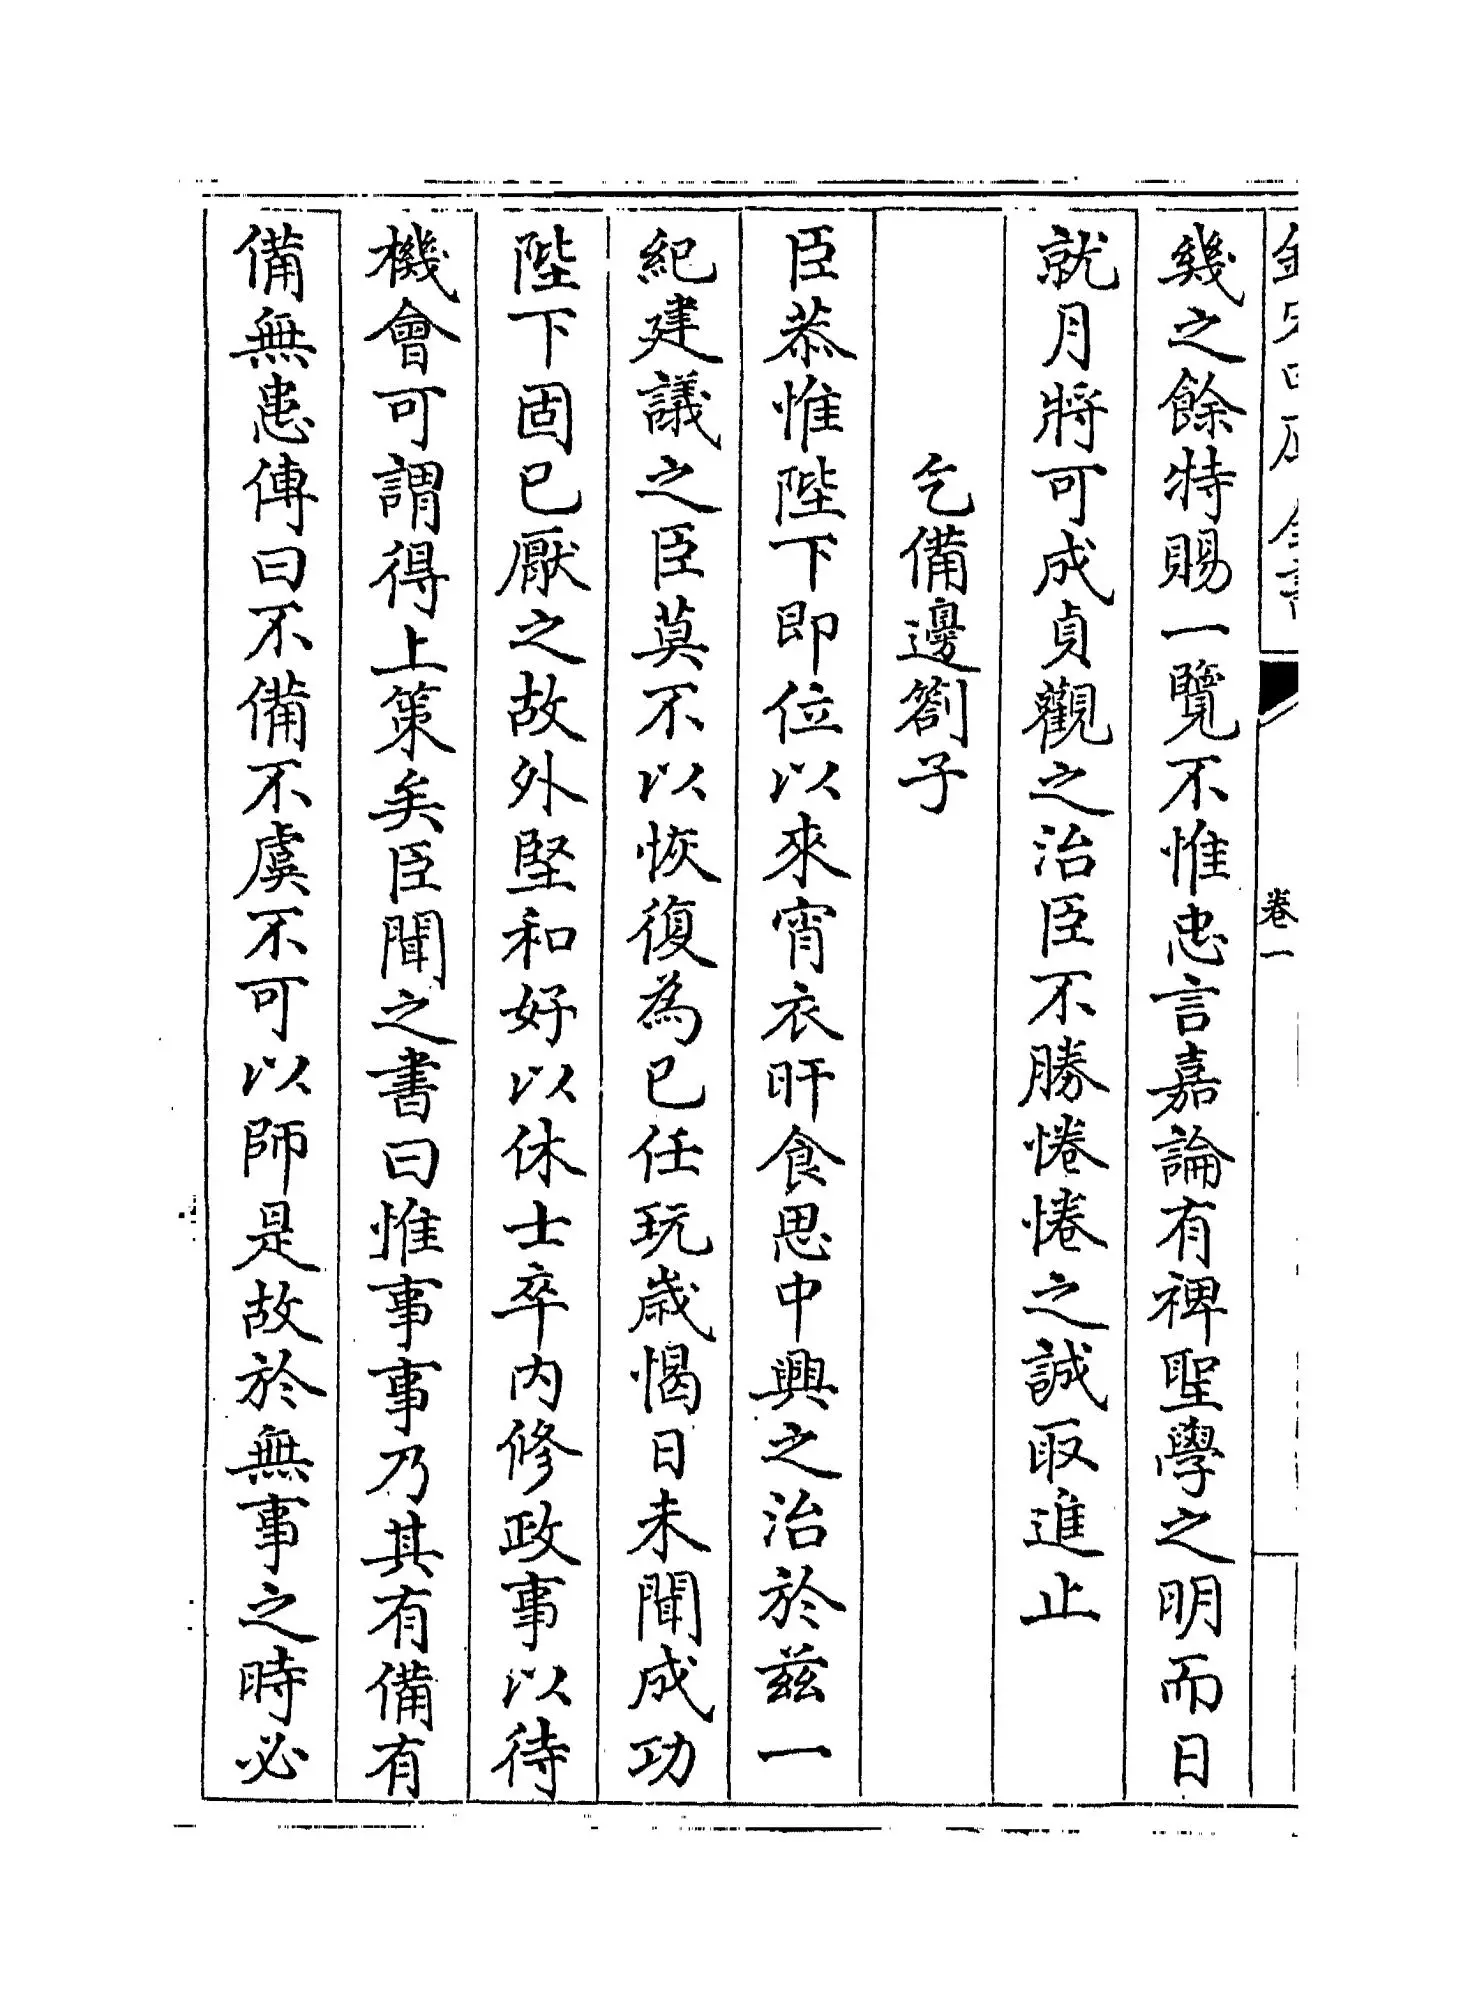 幾之餘特賜一覽不惟忠言嘉論有裨聖學之明而日
就月將可成貞觀之治臣不勝惓惓之誠取進止
乞備邊劄子
臣恭惟陛下即位以來宵衣旰食思中興之治於茲一
紀建議之臣莫不以恢復為已任玩歲愒日未聞成功
陛下固已厭之故外堅和好以休士卒内修政事以待
機會可謂得上策矣臣聞之書曰惟事事乃其有備有
備無患傳曰不備不虞不可以師是故於無事之時必
卷一